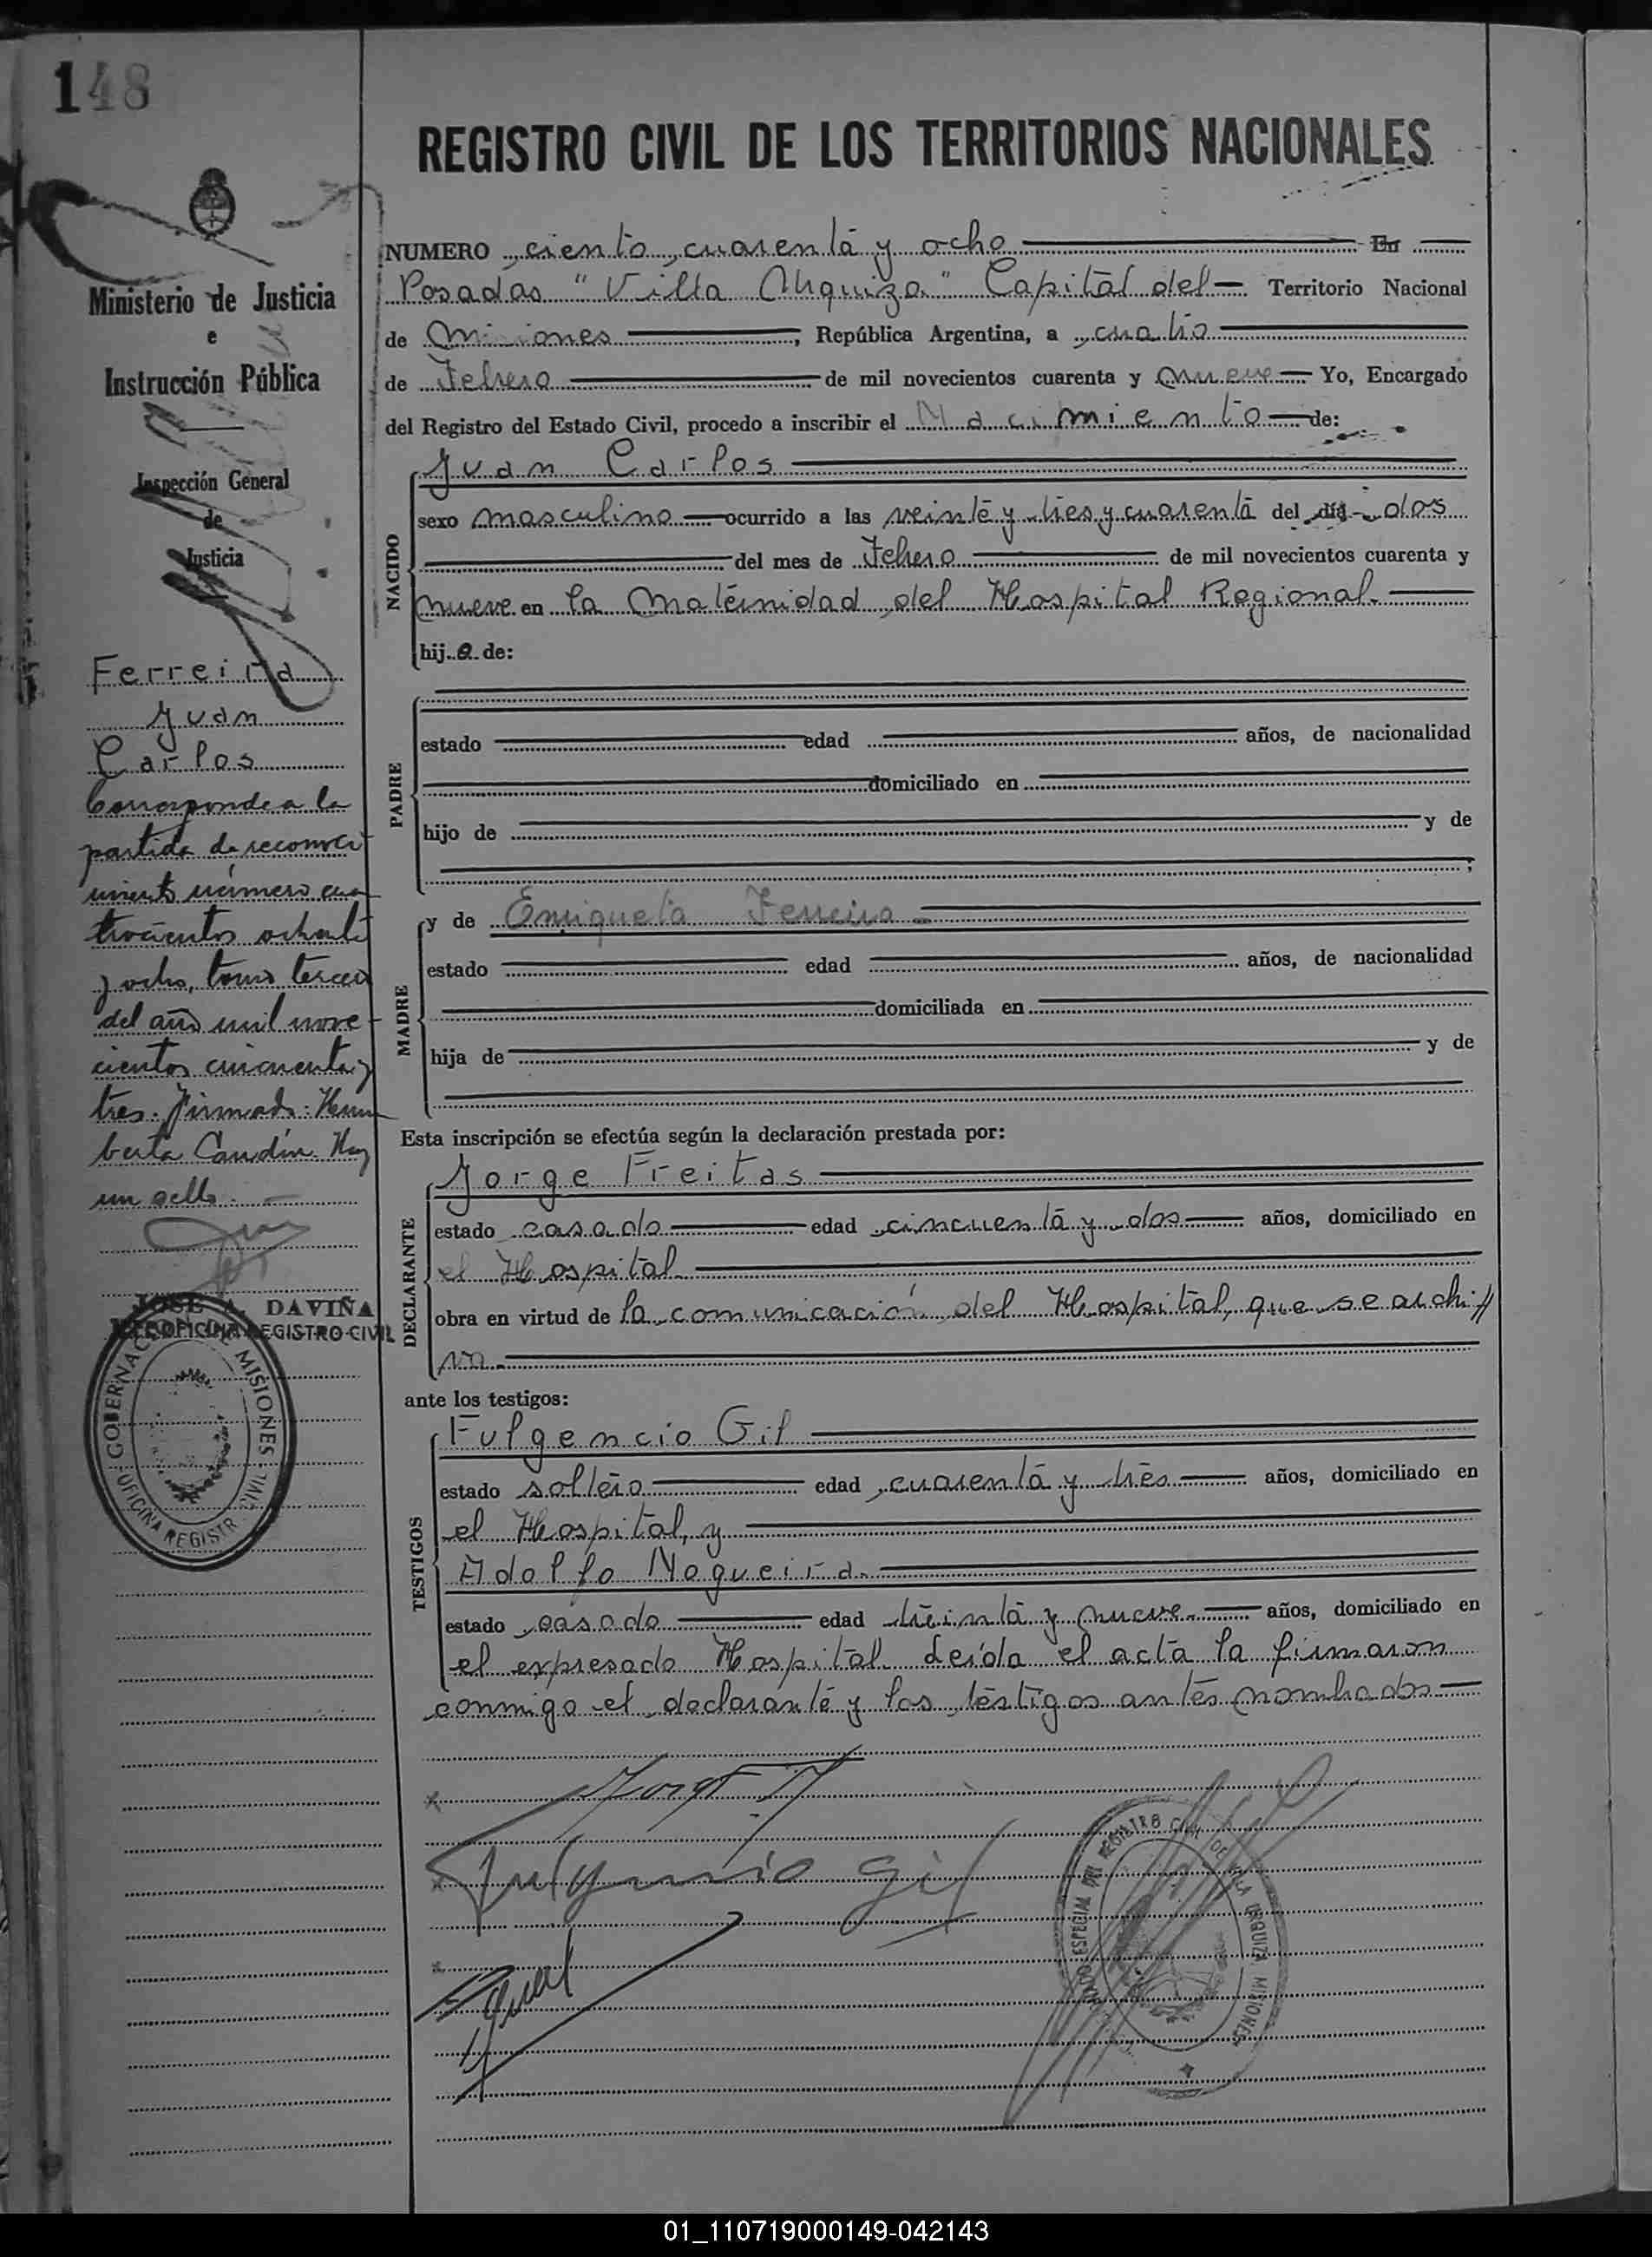 148
REGISTRO CIVIL DE LOS TERRITORIOS NACIONALES
Ministerio de Justicia
e
Instrucción Pública
Inspección General
de
Justicia
Ferreira
Juan
Carlos
Corresponde a la
partida de reconoci
miento número cua
trocientos ochenta
y ocho, tomo tercero
del año mil nove-
cientos cincuenta y
tres. Firmado: Hum
berta Candin. Hay
un sello.
JOSE A. DAVIÑA
JEFE OFICINA REGISTRO CIVIL
GOBERNACION DE MISIONES
OFICINA REGISTRO CIVIL
NUMERO ciento cuarenta y ocho En
Posadas "Villa Urquiza" Capital del Territorio Nacional
de Misiones, República Argentina, a cuatro
de Febrero de mil novecientos cuarenta y nueve Yo, Encargado
del Registro del Estado Civil, procedo a inscribir el Nacimiento de:
NACIDO
Juan Carlos
sexo masculino ocurrido a las veinte y tres y cuarenta del día dos
del mes de Febrero de mil novecientos cuarenta y
nueve en la Maternidad del Hospital Regional.
hijo de:
PADRE
estado edad años, de nacionalidad
domiciliado en
hijo de y de
;
MADRE
y de Enriqueta Ferreira
estado edad años, de nacionalidad
domiciliada en
hija de y de
Esta inscripción se efectúa según la declaración prestada por:
DECLARANTE
Jorge Freitas
estado casado edad cincuenta y dos años, domiciliado en
el Hospital
obra en virtud de la comunicación del Hospital, que se archi//
va.
ante los testigos:
TESTIGOS
Fulgencio Gil
estado soltero edad cuarenta y tres años, domiciliado en
el Hospital, y
Adolfo Nogueira.
estado casado edad treinta y nueve años, domiciliado en
el expresado Hospital. Leída el acta la firmaron
conmigo el declarante y los testigos antes nombrados
Fulgencio Gil
ESPECIAL DEL REGISTRO CIVIL DE VILLA URQUIZA MISIONES
01_110719000149-042143